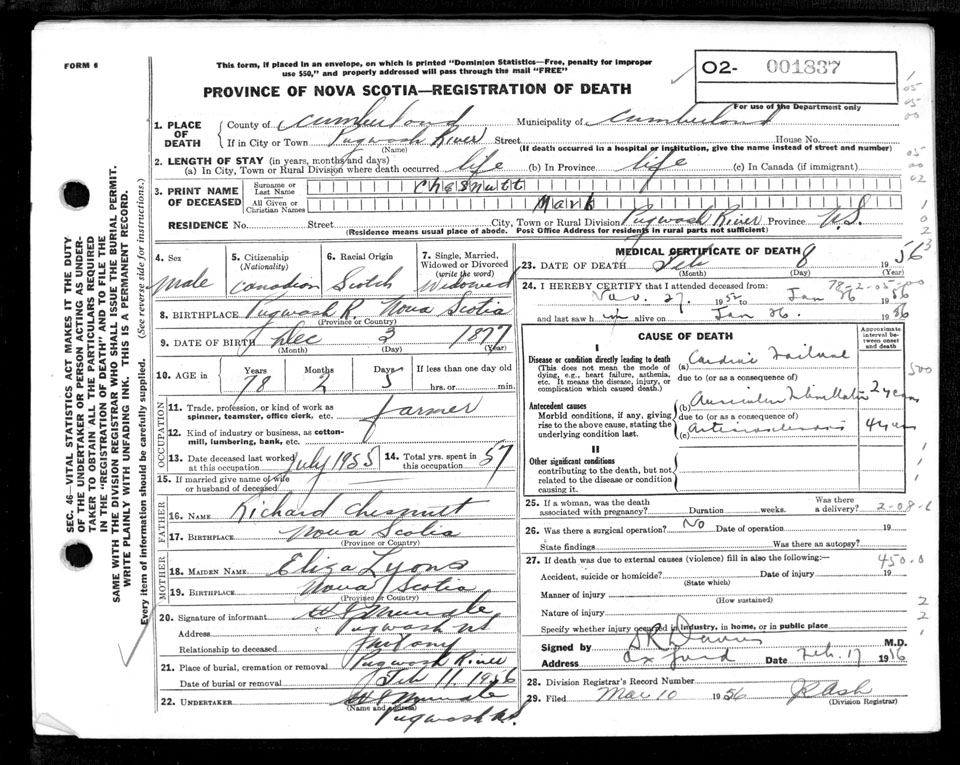 FORM 6
This form, if placed in an envelope, on which is printed "Dominion Statistics—Free, penalty for improper
use $50," and properly addressed will pass through the mail "FREE"
PROVINCE OF NOVA SCOTIA—REGISTRATION OF DEATH
O2- 001837
For use of the Department only
SEC. 46—VITAL STATISTICS ACT MAKES IT THE DUTY
OF THE UNDERTAKER OR PERSON ACTING AS UNDER-
TAKER TO OBTAIN ALL THE PARTICULARS REQUIRED
IN THE "REGISTRATION OF DEATH" AND TO FILE THE
SAME WITH THE DIVISION REGISTRAR WHO SHALL ISSUE THE BURIAL PERMIT.
WRITE PLAINLY WITH UNFADING INK. THIS IS A PERMANENT RECORD.
Every item of information should be carefully supplied. (See reverse side for instructions.)
1. PLACE OF DEATH County of Cumberland Municipality of Cumberland
If in City or Town Pugwash River Street House No.
(Name) (If death occurred in a hospital or institution, give the name instead of street and number)
2. LENGTH OF STAY (in years, months and days)
(a) In City, Town or Rural Division where death occurred life (b) In Province life (c) In Canada (if immigrant)
3. PRINT NAME OF DECEASED Surname or Last Name Chesnutt
All Given or Christian Names Mark
RESIDENCE No. Street City, Town or Rural Division Pugwash River Province N.S.
(Residence means usual place of abode. Post Office Address for residents in rural parts not sufficient)
4. Sex male
5. Citizenship (Nationality) Canadian
6. Racial Origin Scotch
7. Single, Married, Widowed or Divorced (write the word) Widowed
8. BIRTHPLACE Pugwash R. Nova Scotia
(Province or Country)
9. DATE OF BIRTH Dec 3 1877
(Month) (Day) (Year)
10. AGE in Years Months Days If less than one day old
78 2 5 hrs. or min.
OCCUPATION
11. Trade, profession, or kind of work as spinner, teamster, office clerk, etc. farmer
12. Kind of industry or business, as cotton-mill, lumbering, bank, etc.
13. Date deceased last worked at this occupation July 1955
14. Total yrs. spent in this occupation 57
15. If married give name of wife or husband of deceased
FATHER
16. NAME Richard Chesnutt
17. BIRTHPLACE Nova Scotia
(Province or Country)
MOTHER
18. MAIDEN NAME Eliza Lyons
19. BIRTHPLACE Nova Scotia
(Province or Country)
20. Signature of informant
Address Pugwash NS
Relationship to deceased
21. Place of burial, cremation or removal Pugwash River
Date of burial or removal Feb 11, 1956
22. UNDERTAKER
(Name and address) Pugwash N.S.
MEDICAL CERTIFICATE OF DEATH
23. DATE OF DEATH Feb 8 1956
(Month) (Day) (Year)
24. I HEREBY CERTIFY that I attended deceased from
Nov. 27, 1952 to Jan 26 1956
and last saw him alive on Jan 26. 1956
CAUSE OF DEATH
Approximate interval between onset and death
I
Disease or condition directly leading to death
(This does not mean the mode of dying, e.g., heart failure, asthenia, etc. It means the disease, injury, or complication which caused death.)
(a) Cardiac Failure
due to (or as a consequence of)
Antecedent causes
Morbid conditions, if any, giving rise to the above cause, stating the underlying condition last.
(b) Auricular Fibrillation 2 years
due to (or as a consequence of)
(c) Arteriosclerosis 4 years
II
Other significant conditions
contributing to the death, but not related to the disease or condition causing it.
25. If a woman, was the death associated with pregnancy? Duration weeks. Was there a delivery?
26. Was there a surgical operation? No Date of operation 19
State findings Was there an autopsy?
27. If death was due to external causes (violence) fill in also the following:—
Accident, suicide or homicide? Date of injury 19
(State which)
Manner of injury
(How sustained)
Nature of injury
Specify whether injury occurred in industry, in home, or in public place
Signed by M.D.
Address Oxford Date Feb. 17 1956
28. Division Registrar's Record Number
29. Filed Mar 10 1956
(Division Registrar)